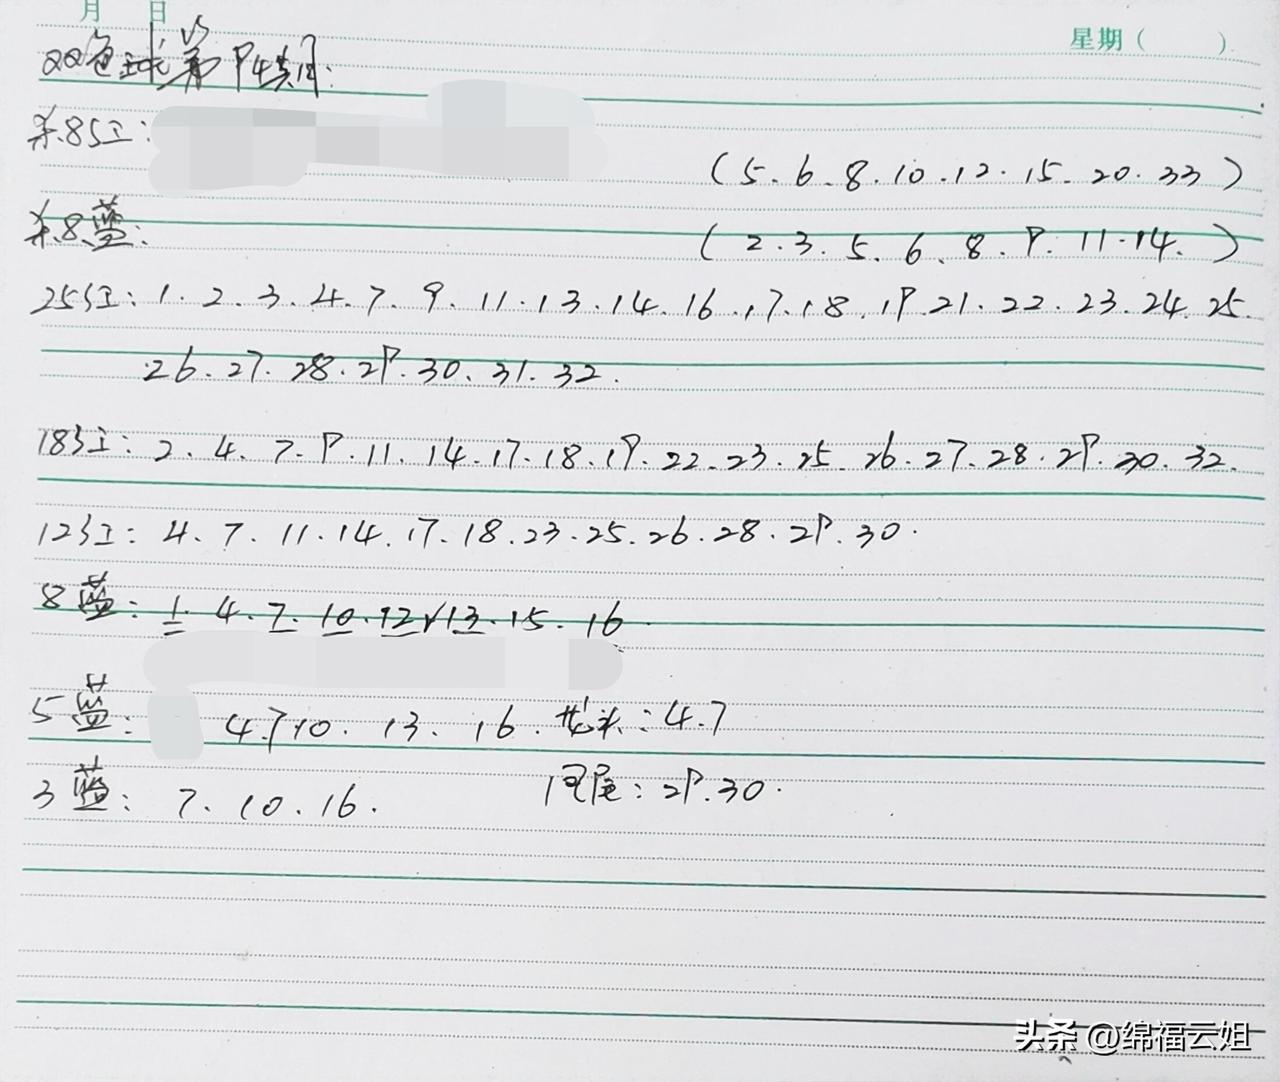 月 日
星期( )
双色球第94期:
杀8红:
(5.6.8.10.12.15.20.33)
杀8蓝:
(2.3.5.6.8.9.11.14.)
25红:1.2.3.4.7.9.11.13.14.16.17.18.19.21.22.23.24.25.
26.27.28.29.30.31.32.
18红:2.4.7.9.11.14.17.18.19.22.23.25.26.27.28.29.30.32.
12红:4.7.11.14.17.18.23.25.26.28.29.30.
8蓝:1.4.7.10.12.13.15.16.
5蓝: 4.7.10.13.16.龙头:4.7
3蓝:7.10.16. 凤尾:29.30.
头条 @绵福云姐